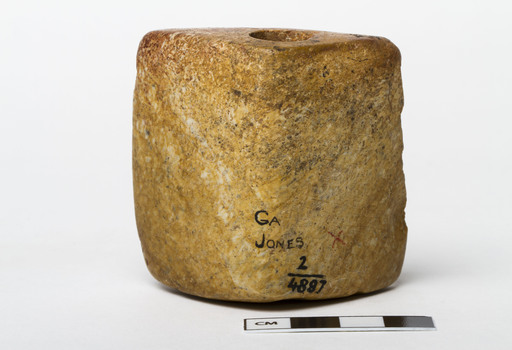 GA
JONES X
2
4887
CM